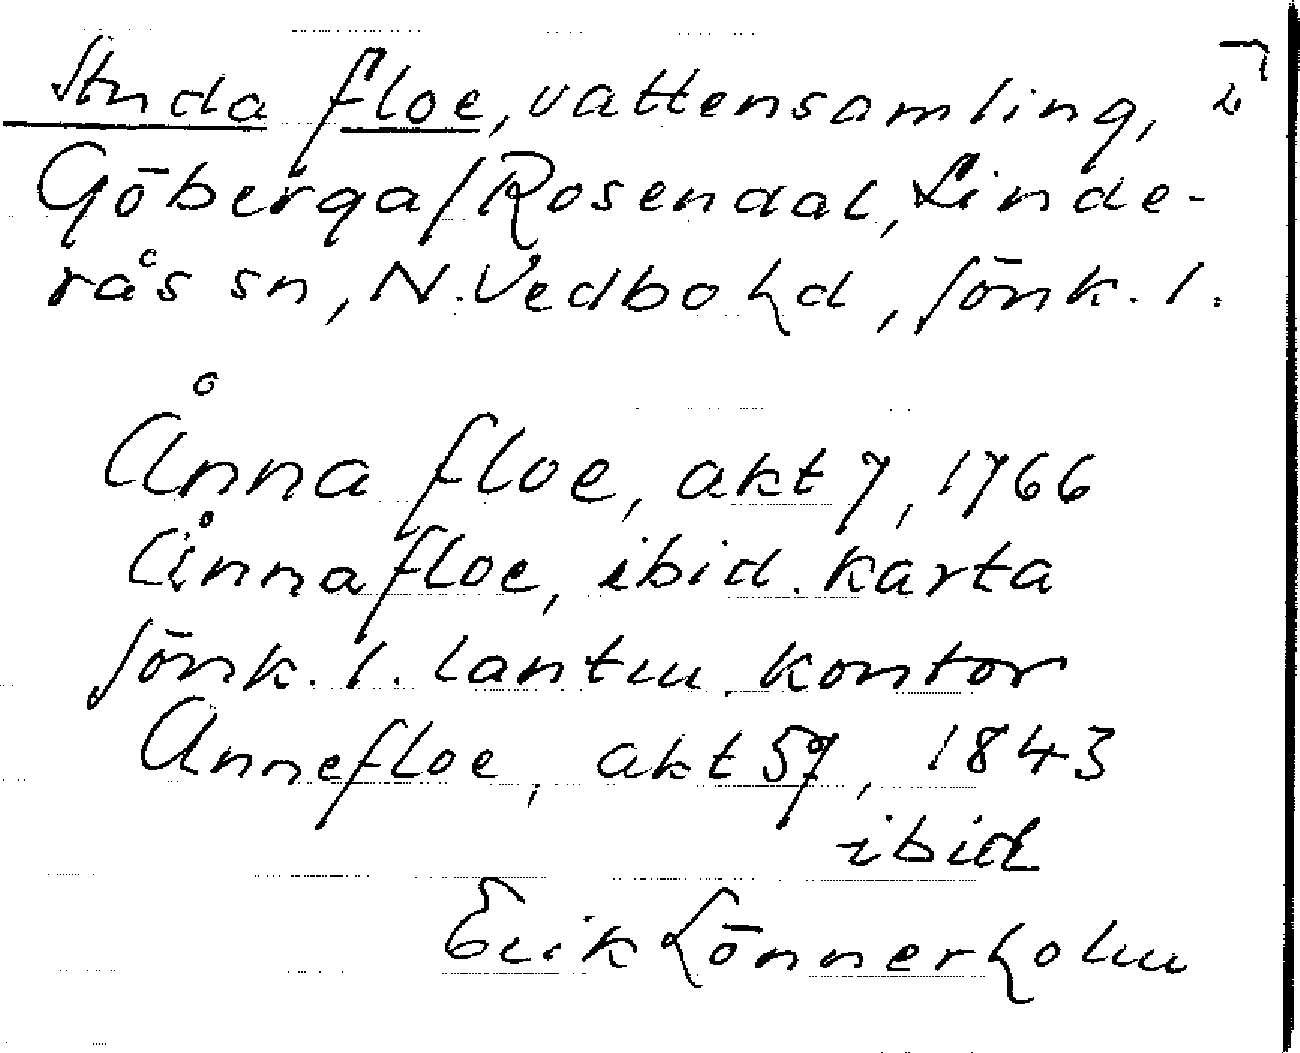 Anda floe, vattensamling, 2
Göberga/Rosendal, Linde-
rås sn, N. Vedbo hd, Jönk. l.
Ånna floe, akt 7, 1766
Ånnafloe, ibid. karta
Jönk. l. lantm. kontor
Annefloe, akt 59, 1843
ibid
Erik Lönnerholm